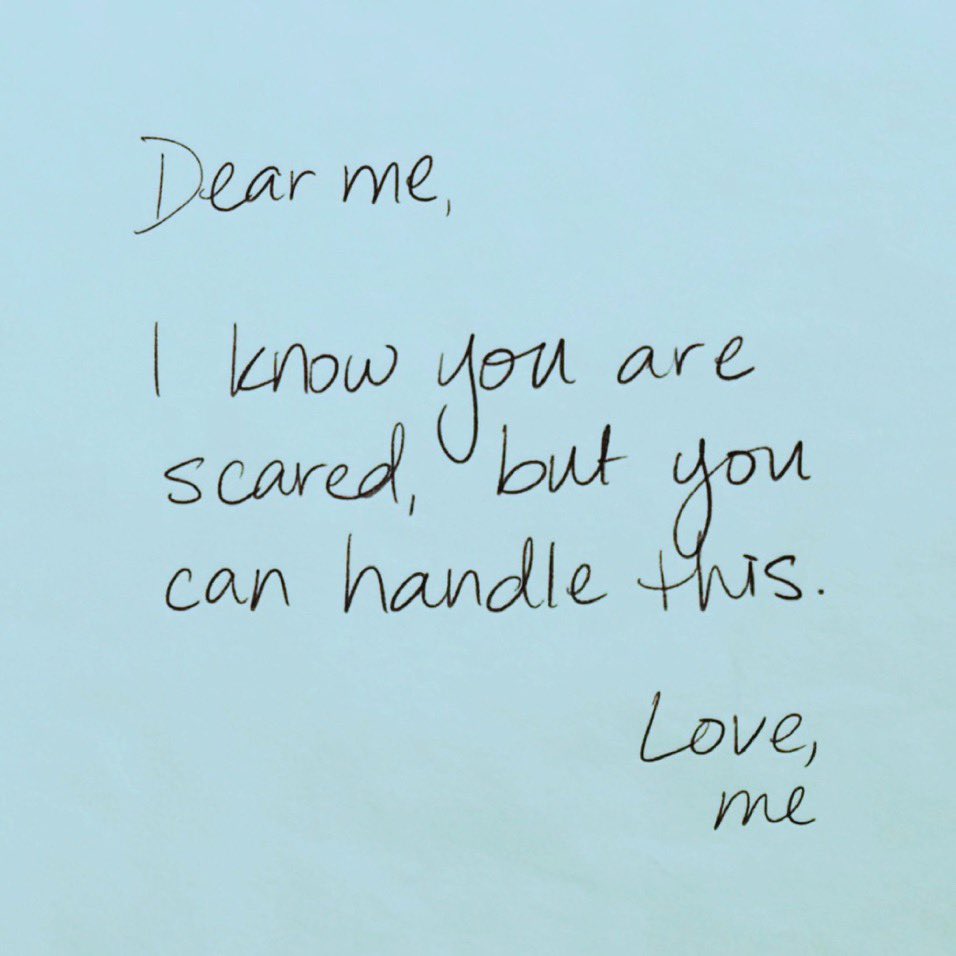 Dear me,
I know you are
scared, but you
can handle this.
Love,
me